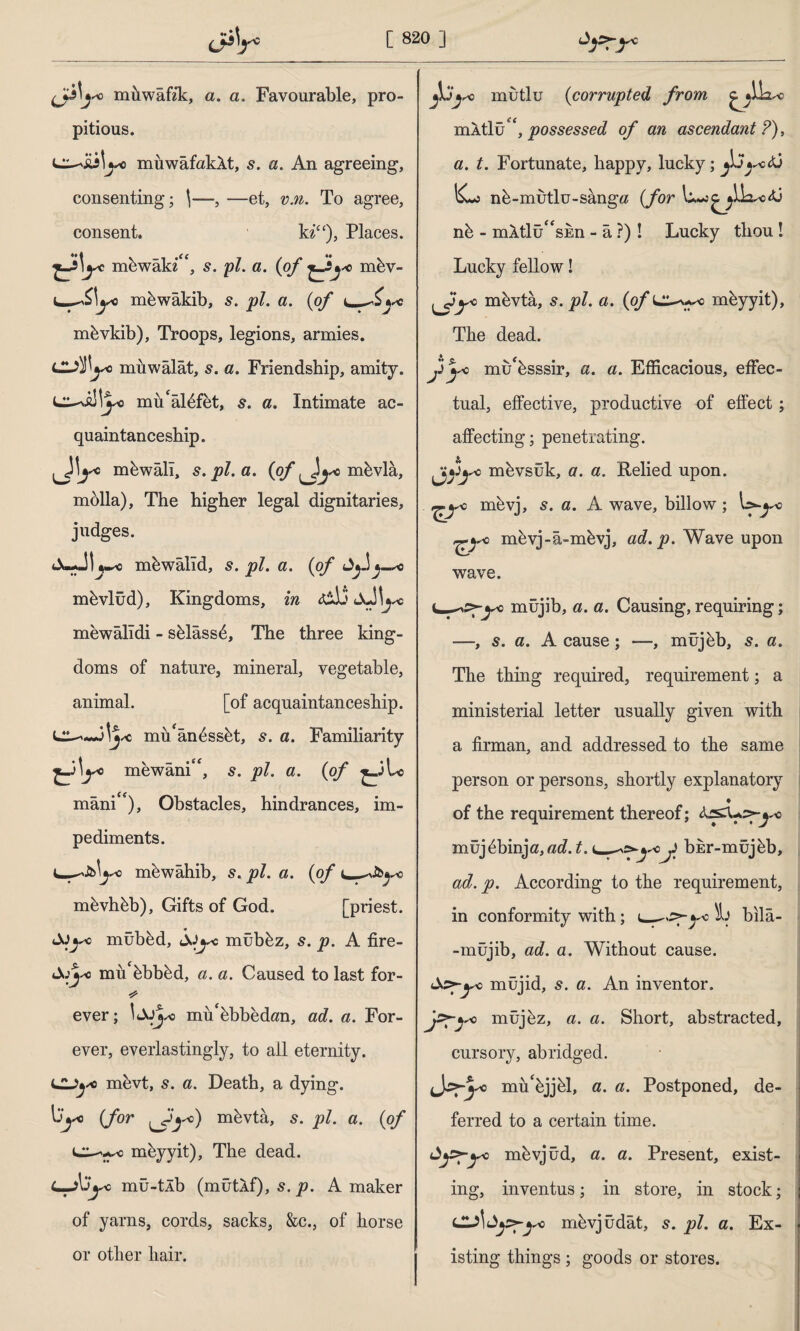 موافق [ 820 ] موجود
موافق muwāfɪk, a. a. Favourable, pro-
pitious.
موافقت muwāfakʌt, s. a. An agreeing,
consenting; ا—, —et, v.n. To agree,
consent. kɪ“), Places.
مواقع mèwākɪ“, s. pl. a. (of موقع mèv-
مواكب mèwākib, s. pl. a. (of موكب
mèvkib), Troops, legions, armies.
موالات muwālāt, s. a. Friendship, amity.
مؤالفت mu‘āléfèt, s. a. Intimate ac-
quaintanceship.
موالى mèwālī, s. pl. a. (of مولى mèvlà,
mòlla), The higher legal dignitaries,
judges.
مواليد mèwālīd, s. pl. a. (of مولود
mèvlūd), Kingdoms, in مواليد ثلثه
mèwālīdi-sèlāssé, The three king-
doms of nature, mineral, vegetable,
animal. [of acquaintanceship.
مؤانست mu‘ānéssèt, s. a. Familiarity
موانع mèwāni“, s. pl. a. (of مانع
māni“), Obstacles, hindrances, im-
pediments.
مواهب mèwāhib, s. pl. a. (of موهب
mèvhèb), Gifts of God. [priest.
موبد mūbèd, موبذ mūbèz, s. p. A fire-
مؤبد mu‘èbbèd, a. a. Caused to last for-
ever; مؤبدا mu‘èbbèdan, ad. a. For-
ever, everlastingly, to all eternity.
موت mèvt, s. a. Death, a dying.
موتا (for موتى) mèvtà, s. pl. a. (of
ميت mèyyit), The dead.
موتاب mū-tāb (mūtʌf), s. p. A maker
of yarns, cords, sacks, &c., of horse
or other hair.
موتلو mūtlu (corrupted from مطلوع
mʌtlū“, possessed of an ascendant ?),
a. t. Fortunate, happy, lucky; نه موتلو
سكا nè-mūtlu-sànga (for نه مطلوع سنا
nè-mʌtlū“sᴇn-ā ?)! Lucky thou!
Lucky fellow!
موتى mèvtà, s. pl. a. (of ميت mèyyit),
The dead.
مؤثر mu‘èsssir, a. a. Efficacious, effec-
tual, effective, productive of effect;
affecting; penetrating.
موثوق mèvsūk, a. a. Relied upon.
موج mèvj, s. a. A wave, billow; موجا
موج mèvj-ā-mèvj, ad. p. Wave upon
wave.
موجب mūjib, a. a. Causing, requiring;
—, s. a. A cause; —, mūjèb, s. a.
The thing required, requirement; a
ministerial letter usually given with
a firman, and addressed to the same
person or persons, shortly explanatory
of the requirement thereof; موجبنجه
mūjébinja, ad. t. بر موجب bᴇr-mūjèb,
ad. p. According to the requirement,
in conformity with; بلا موجب bìlā-
-mūjib, ad. a. Without cause.
موجد mūjid, s. a. An inventor.
موجز mūjèz, a. a. Short, abstracted,
cursory, abridged.
مؤجل mu‘èjjèl, a. a. Postponed, de-
ferred to a certain time.
موجود mèvjūd, a. a. Present, exist-
ing, inventus; in store, in stock;
موجودات mèvjūdāt, s. pl. a. Ex-
isting things; goods or stores.